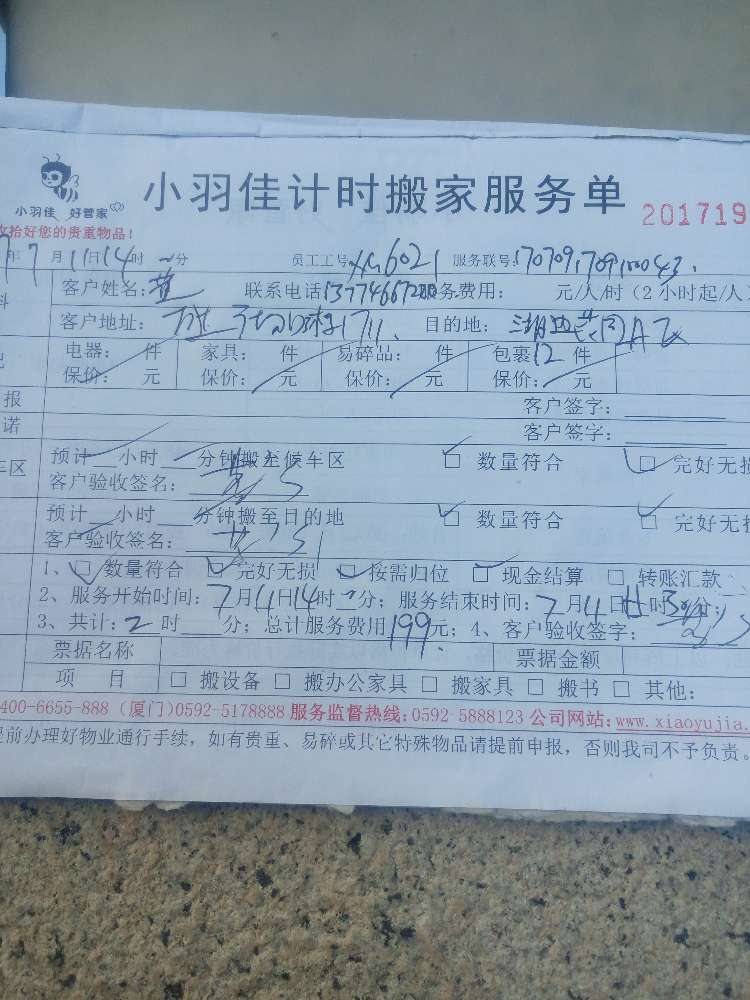 小羽佳 好管家
小羽佳计时搬家服务单 201719
收拾好您的贵重物品!
年7月11日14时 分 员工工号:XG6021 服务联号:
客户姓名: 联系电话: 服务费用: 元/人/时(2小时起/人
客户地址: 目的地:
电器: 件 家具: 件 易碎品: 件 包裹12件
保价: 元 保价: 元 保价: 元 保价: 元
报 客户签字:
诺 客户签字:
预计 小时 分钟搬至候车区 □ 数量符合 □ 完好无损
车区
客户验收签名:
预计 小时 分钟搬至目的地 □ 数量符合 □ 完好无
客户验收签名:
1、□ 数量符合 □ 完好无损 □ 按需归位 □ 现金结算 □ 转账汇款
2、服务开始时间:7月11日14时 分; 服务结束时间:7月 日 时 分;
3、共计:2时 分; 总计服务费用199元; 4、客户验收签字:
票据名称 票据金额
项 目 □ 搬设备 □ 搬办公家具 □ 搬家具 □ 搬书 □ 其他:
400-6655-888 (厦门)0592-5178888 服务监督热线:0592-5888123 公司网站:www.xiaoyujia.
前办理好物业通行手续,如有贵重、易碎或其它特殊物品请提前申报,否则我司不予负责。